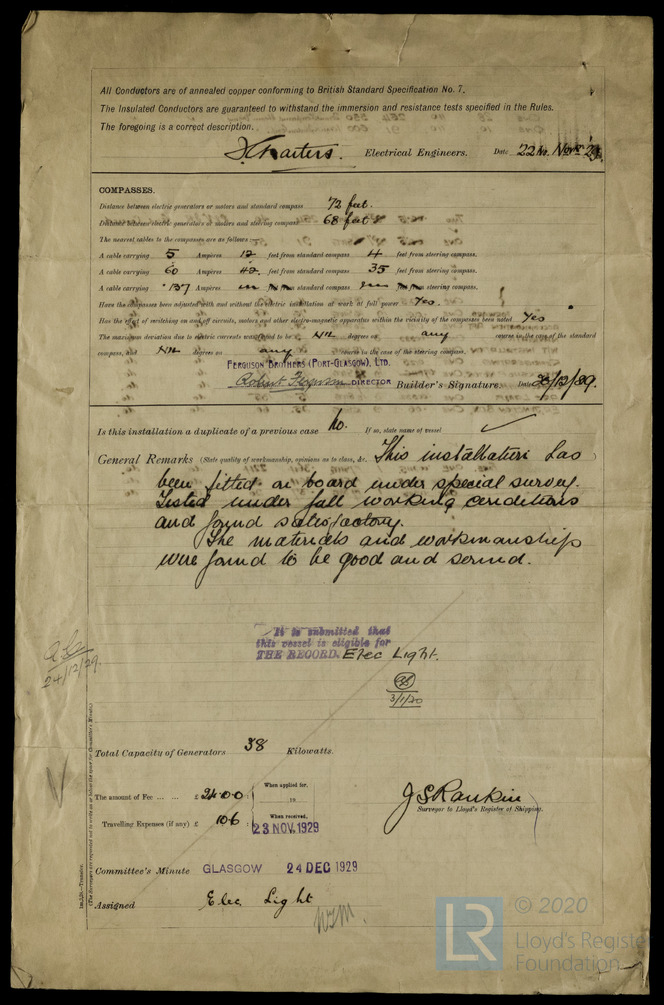 All Conductors are of annealed copper conforming to British Standard Specification No. 7.
The Insulated Conductors are guaranteed to withstand the immersion and resistance tests specified in the Rules.
The foregoing is a correct description.
Electrical Engineers. Date 22nd Novr 29.
COMPASSES.
Distance between electric generators or motors and standard compass 72 feet.
Distance between electric generators or motors and steering compass 68 feet
The nearest cables to the compasses are as follows:—
A cable carrying 5 Amperes 12 feet from standard compass 4 feet from steering compass.
A cable carrying 60 Amperes 42 feet from standard compass 35 feet from steering compass.
A cable carrying 137 Amperes in from standard compass from steering compass.
Have the compasses been adjusted with and without the electric installation at work at full power Yes.
Has the effect of switching on and off circuits, motors and other electro-magnetic apparatus within the vicinity of the compasses been noted Yes
The maximum deviation due to electric currents was found to be Nil degrees on any course in the case of the standard
compass, and Nil degrees on any course in the case of the steering compass.
FERGUSON BROTHERS (PORT-GLASGOW), LTD.
Robert Ferguson DIRECTOR Builder's Signature. Date 20/12/29.
Is this installation a duplicate of a previous case No. If so, state name of vessel
General Remarks (State quality of workmanship, opinions as to class, &c. This installation has
been fitted on board under special survey.
Tested under full working conditions
and found satisfactory.
The materials and workmanship
were found to be good and sound.
It is submitted that
this vessel is eligible for
THE RECORD. Elec Light.
3/1/30
24/12/29.
Total Capacity of Generators 38 Kilowatts.
The amount of Fee ... ... £ 24:0:0 When applied for,
Travelling Expenses (if any) £ 10 6 When received,
23 NOV. 1929
J S Rankin
Surveyor to Lloyd's Register of Shipping.
Committee's Minute GLASGOW 24 DEC 1929
Assigned Elec Light
© 2020
LR Lloyd's Register
Foundation